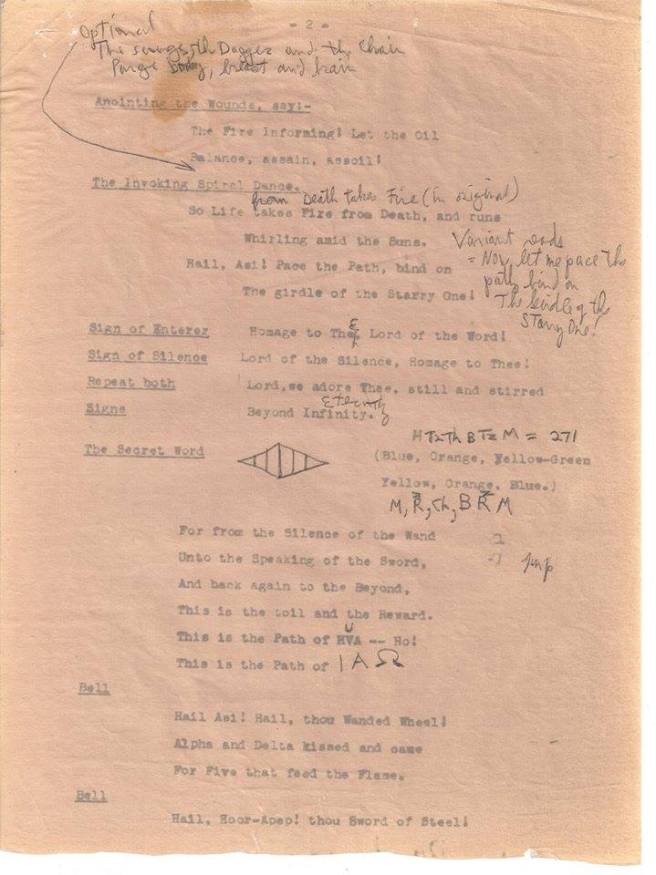 - 2 -
Optional
The scourge, the Dagger and the Chain
Purge body, breast and brain
Anointing the Wounds, say:-
The Fire Informing! Let the Oil
Balance, assain, assoil!
The Invoking Spiral Dance.
from Death takes Fire (in original)
So Life takes Fire from Death, and runs
Whirling amid the Suns.
Hail, Asi! Pace the Path, bind on
The girdle of the Starry One!
Variant reads
= Now let me pace the
path, bind on
The Girdle of the
Starry One!
Sign of Enterer Homage to Thee Lord of the Word!
Sign of Silence Lord of the Silence, Homage to Thee!
Repeat both Lord, we adore Thee, still and stirred
Eternity
Signs Beyond Infinity.
The Secret Word
M Tz Th B Tz M = 271
(Blue, Orange, Yellow-Green
Yellow, Orange, Blue.)
For from the Silence of the Wand
Unto the Speaking of the Sword,
And back again to the Beyond,
This is the toil and the Reward.
U
This is the Path of HVA -- Ho!
This is the Path of IAΩ
Bell
Hail Asi! Hail, thou Wanded Wheel!
Alpha and Delta kissed and came
For Five that feed the Flame.
Bell
Hail, Hoor-Apep! thou Sword of Steel!